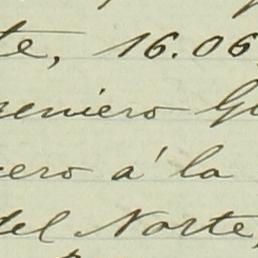 te, 16.06
geniero G
ero á la
del Norte,